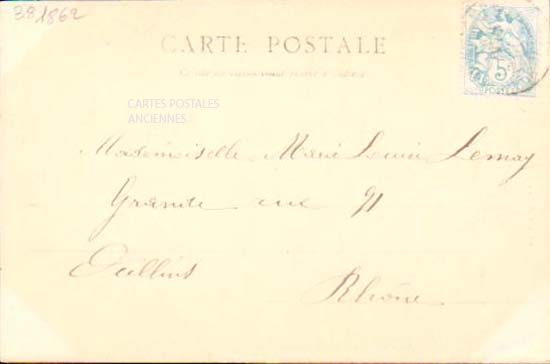 381862
CARTE POSTALE
5c
POSTES
CARTES POSTALES
ANCIENNES
Mademoiselle Marie Louise Lemay
Grande rue 91
Oullins
Rhône